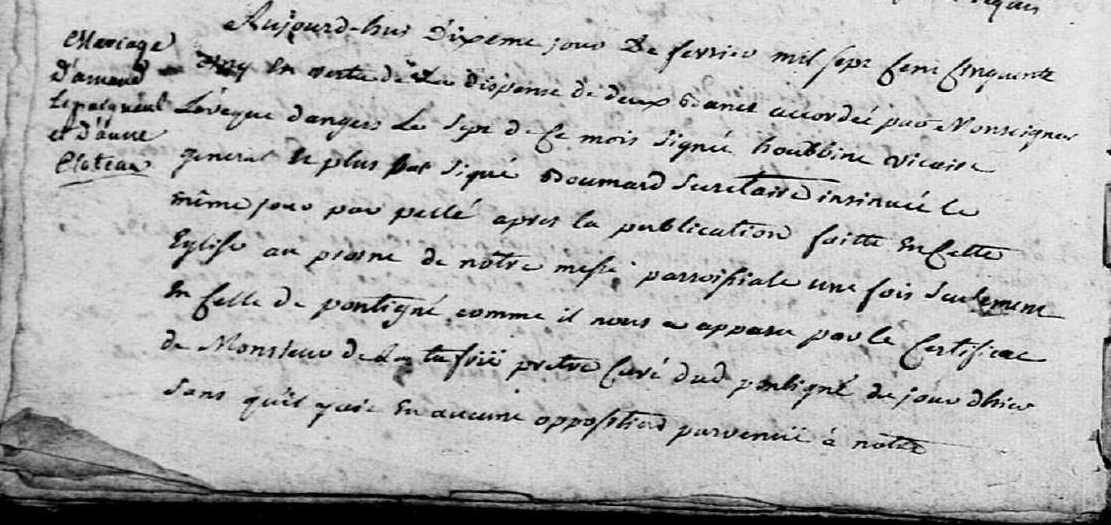 Mariage
d'amand
Lepaigneul
et d'anne
Cloteau
Aujourd-huy dixeme jour de fevrier mil sept cent cinquante
cinq en vertu de la dispense de deux bancs accordée par Monseigneur
Lévêque dangers le sept de ce mois signé houbbine vicaire
general et plus bas signé Boumard secretaire insinuée le
même jour par pellé apres la publication faitte en cette
Eglise au prosne de notre messe parroissiale une fois seulement
en celle de pontigné comme il nous a apparu par le certificat
de Monsieur de prêtre curé dud pontigné du jour dhier
sans qu'il y ait eu aucune opposition parvenuë à notre